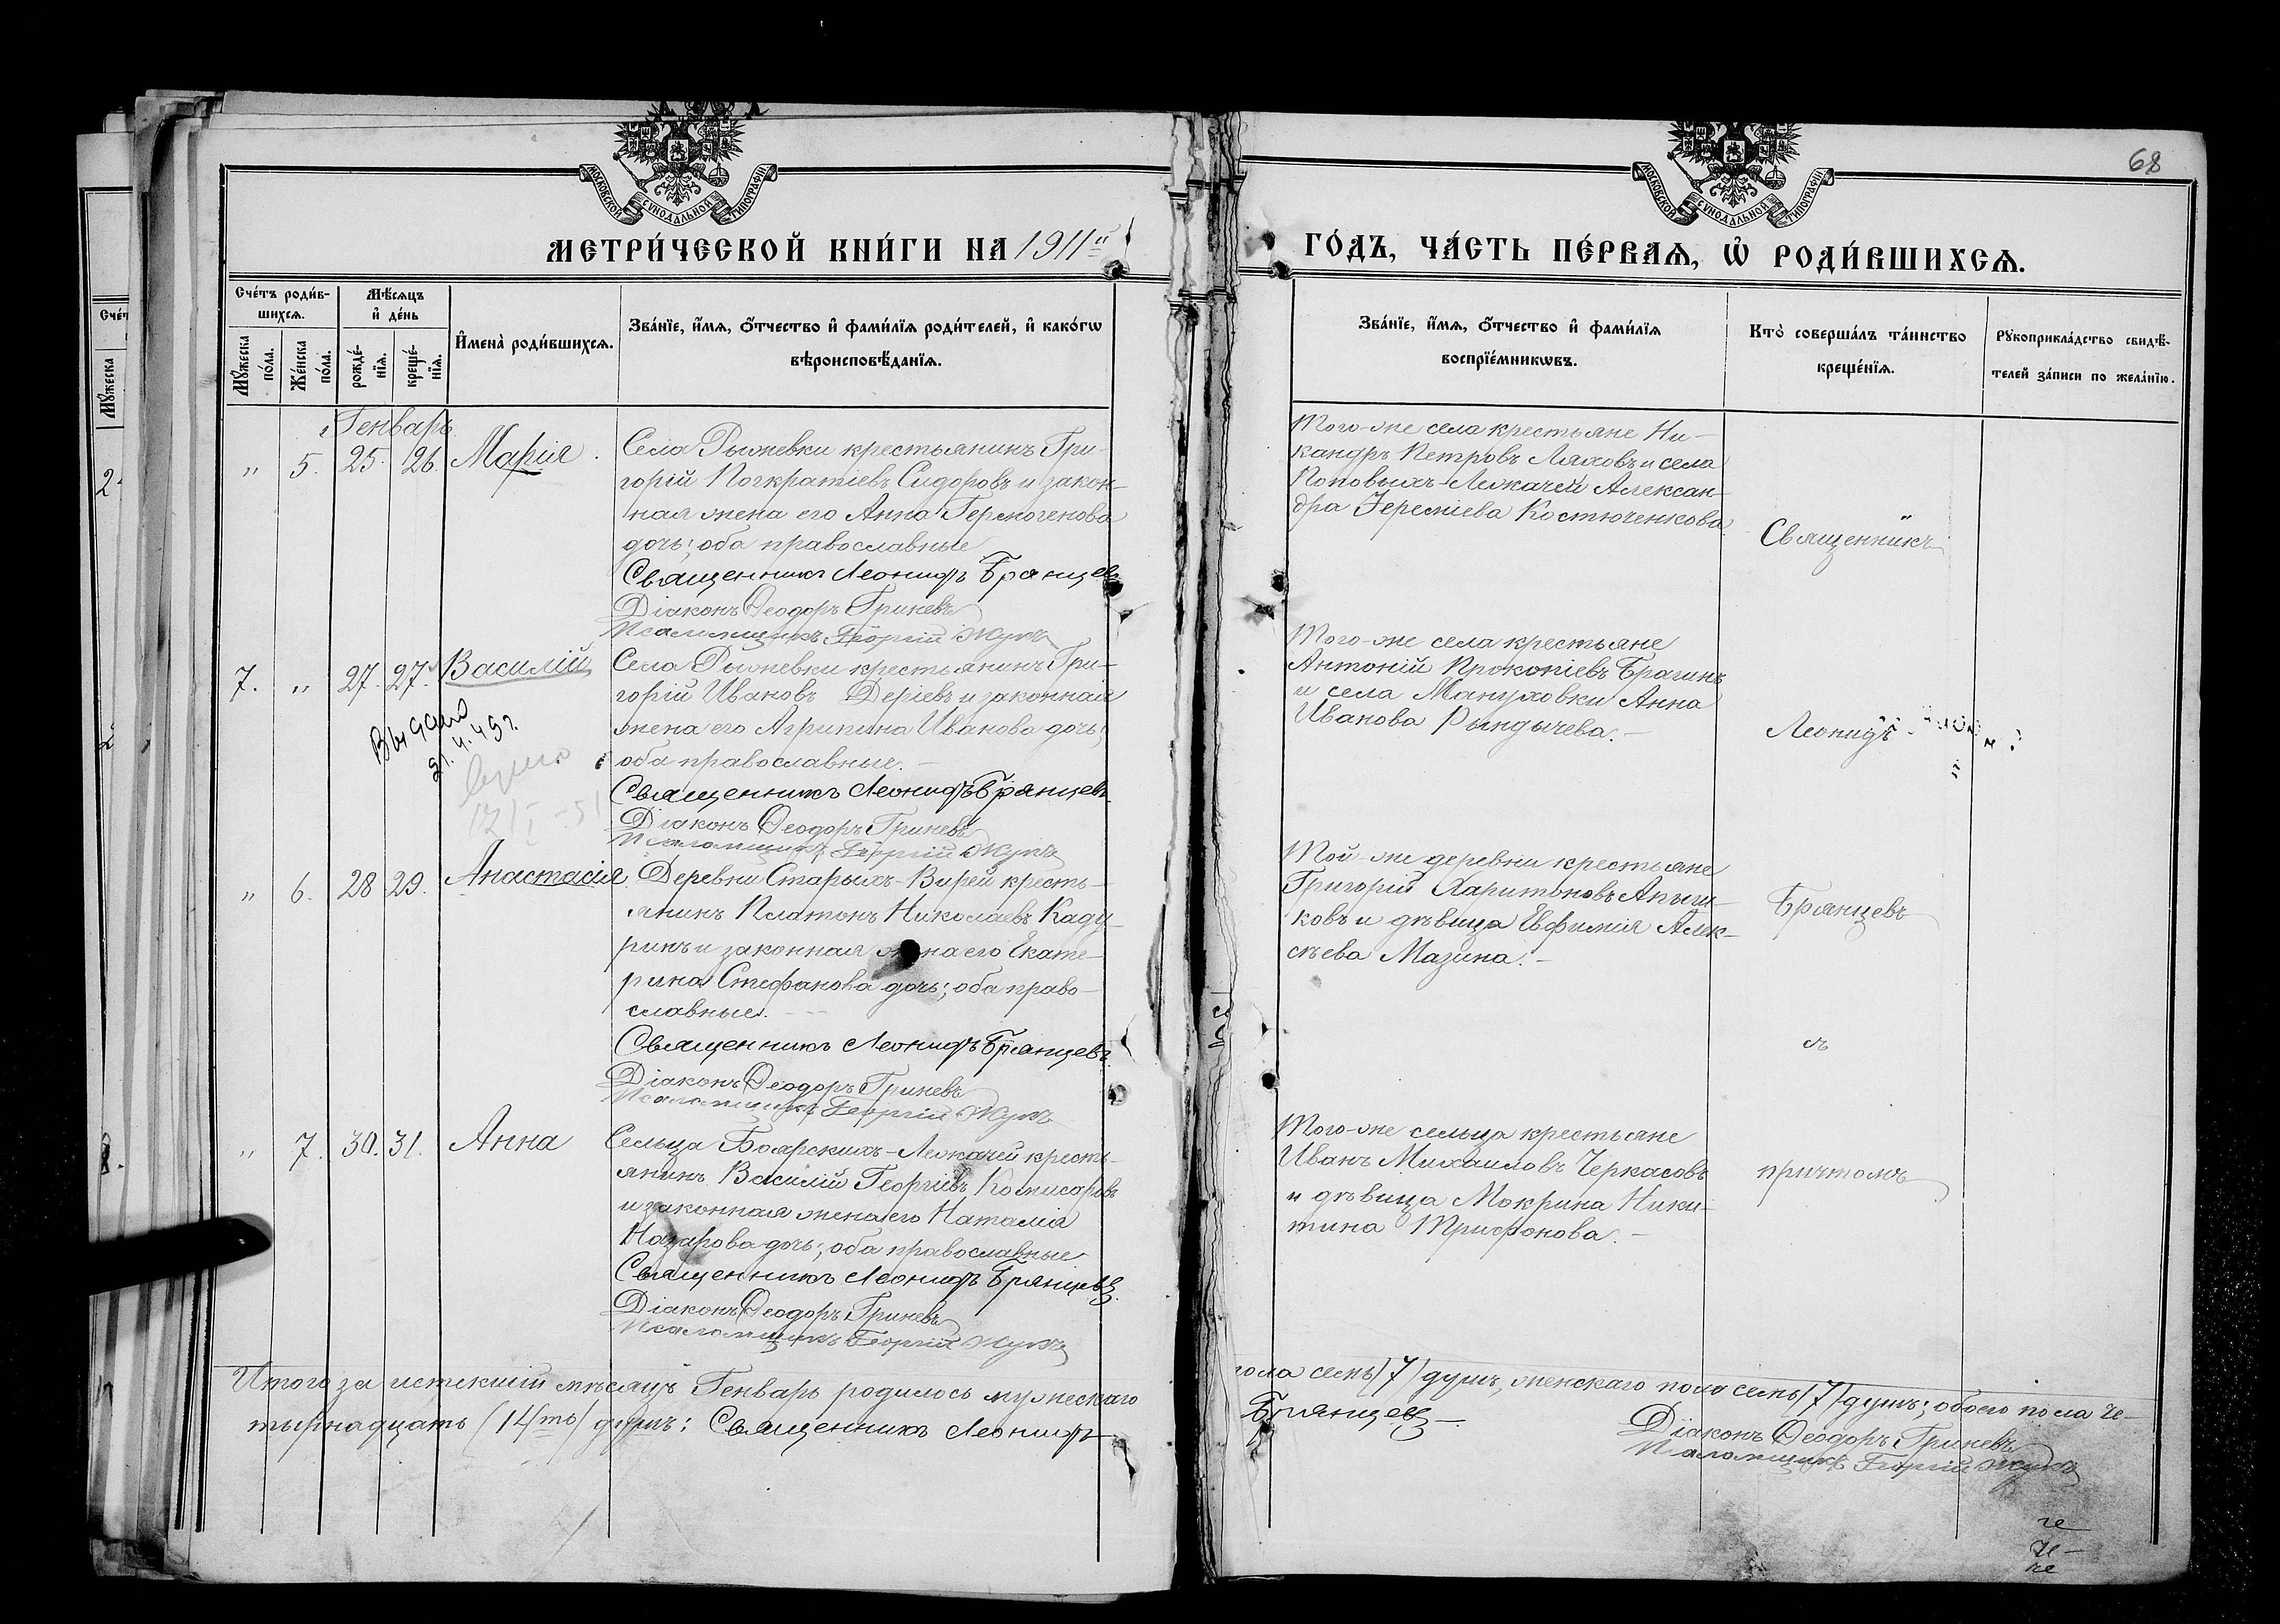 МОСКОВСКОЙ СѴНОДАЛЬНОЙ ТИПОГРАФІИ
МОСКОВСКОЙ СѴНОДАЛЬНОЙ ТИПОГРАФІИ
68
МЕТРИ́ЧЕСКОЙ КНИ́ГИ НА 1911й
ГО́ДЪ, ЧА́СТЬ ПЕ́РВАѦ, Ѡ҆ РОДИ́ВШИХСѦ.
Сче́тъ роди́в-
шихсѧ.
Мꙋ́жеска по́ла.
Же́нска по́ла.
Мѣ́сѧцъ
и҆ де́нь
рожде́-нїѧ.
креще́-нїѧ.
И҆мена̀ роди́вшихсѧ.
Зва́нїе, и҆́мѧ, ѻ҆́тчество и҆ фами́лїѧ роди́телей, и҆ како́гѡ
вѣроисповѣ́данїѧ.
Зва́нїе, и҆́мѧ, ѻ҆́тчество и҆ фами́лїѧ
воспрїе́мникѡвъ.
Кто̀ соверша́лъ та́инство
креще́нїѧ.
Рꙋкоприкла́дство свидѣ́-
телей за́писи по жела́нїю.
Генварь
" 5. 25. 26. Марія.
Села Рыжевки крестьянинъ Гри-
горій Погкратіевъ Сидоровъ и закон-
ная жена его Анна Гермогенова
дочь; оба православные
Священникъ Леонидъ Брянцев
Діаконъ Ѳеодоръ Гриневъ
Псаломщикъ Георгій Жукъ
Того-же села крестьяне Ни-
кандръ Петровъ Ляховъ и села
Поповыхъ-Лежачей Алексан-
дра Іереміева Костюченкова
Священникъ
7. " 27. 27. Василій
Села Рыжевки крестьянинъ Гри-
горій Ивановъ Деріевъ и законная
жена его Агрипина Иванова дочь;
оба православные.
Священникъ Леонидъ Брянцевъ.
Діаконъ Ѳеодоръ Гриневъ
Псаломщикъ Георгій Жукъ
Выдано
Того-же села крестьяне
Антоній Прокопіевъ Брагинъ
и села Мануховки Анна
Иванова Рындычева.
Леонидъ
" 6. 28 29. Анастасія.
Деревни Старыхъ-Вирей кресть-
янинъ Платонъ Николаевъ Каду-
ринъ и законная жена его Екате-
рина Стефанова дочь; оба право-
славные.
Священникъ Леонидъ Брянцевъ.
Діаконъ Ѳеодоръ Гриневъ
Псаломщикъ Георгій Жукъ
Той-же деревни крестьяне
Григорій Харитоновъ
ковъ и дѣвица Евфимія Алек-
сѣева Мазина.
Брянцевъ
съ
" 7. 30. 31. Анна
Сельца Боярскихъ-Лежачей кресть-
янинъ Василій Георгіевъ Комисаровъ
и законная жена его Наталія
Назарова дочь; оба православные
Священникъ Леонидъ Брянцевъ.
Діаконъ Ѳеодоръ Гриневъ
Псаломщикъ Георгій Жукъ
Того-же сельца крестьяне
Иванъ Михаиловъ Черкасовъ
и дѣвица Мокрина Ники-
тина Трифонова.
причтомъ
Итого за истекшій мѣсяцъ Генварь родилось мужескаго
пола семь /7/ душъ, женскаго пола семь /7/ душъ; обоего пола че-
тырнадцать (14ть) душъ: Священникъ Леонидъ
Брянцевъ
Діаконъ Ѳеодоръ Гриневъ
Псаломщикъ Георгій Жукъ